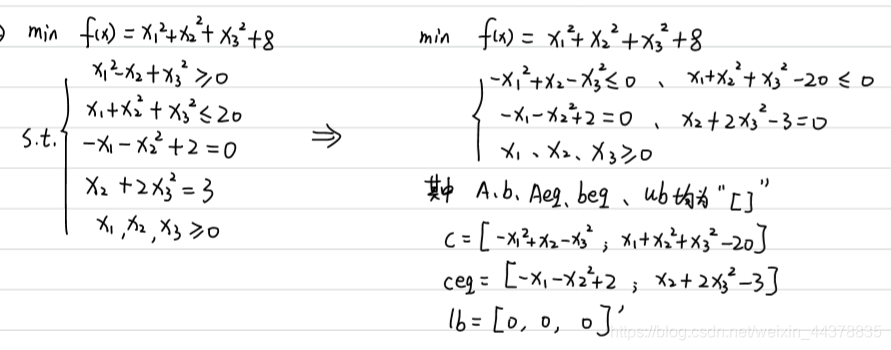 min f(x) = x₁²+x₂²+x₃²+8
s.t. { x₁²-x₂+x₃² ≥ 0
x₁+x₂²+x₃² ≤ 20
-x₁-x₂²+2=0
x₂+2x₃²=3
x₁,x₂,x₃ ≥ 0
⇒
min f(x) = x₁²+x₂²+x₃²+8
{ -x₁²+x₂-x₃² ≤ 0 、 x₁+x₂²+x₃²-20 ≤ 0
-x₁-x₂²+2=0 、 x₂+2x₃²-3=0
x₁、x₂、x₃ ≥ 0
其中 A.b. Aeq、beq、ub均为“[]”
c = [-x₁²+x₂-x₃² ; x₁+x₂²+x₃²-20]
ceq = [-x₁-x₂²+2 ; x₂+2x₃²-3]
lb = [0, 0, 0]′
https://blog.csdn.net/weixin_44378835